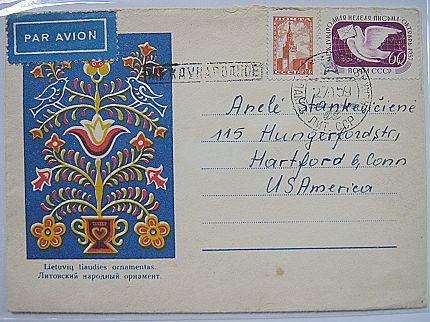 PAR AVION
ПОЧТА
СССР
МЕЖДУНАРОДНАЯ НЕДЕЛЯ ПИСЬМА
60
ПОЧТА СССР
МЕЖДУНАРОДНОЕ
Anelė Stankevičienė
115 Hungerfordstr,
Hartford 6, Conn
USAmerica
Lietuvių liaudies ornamentas.
Литовский народный орнамент.